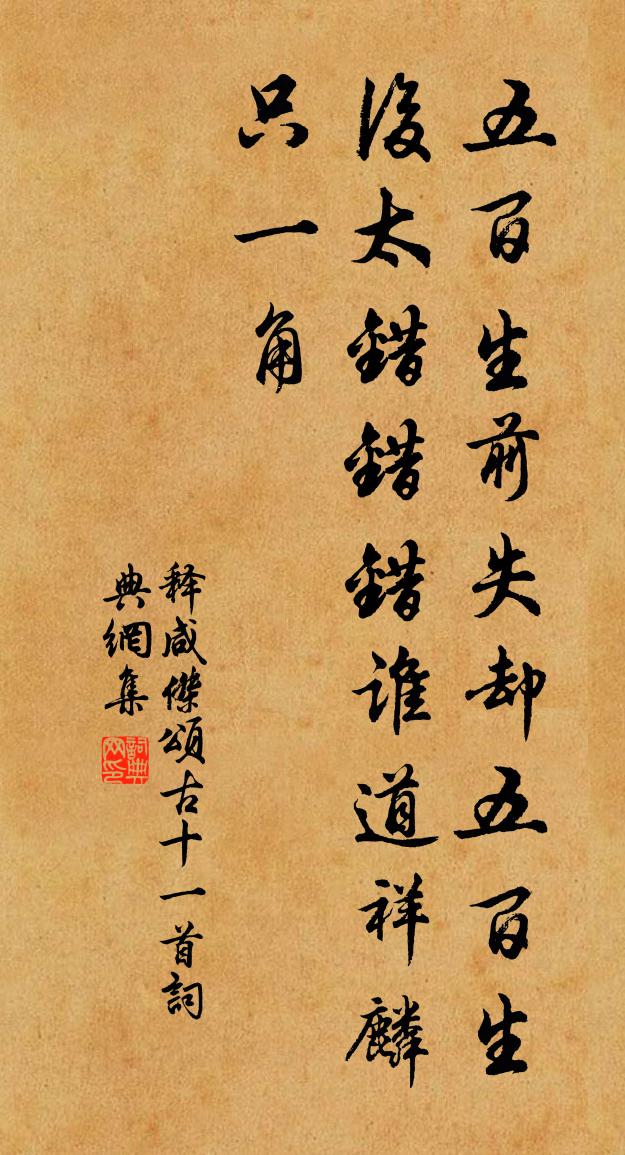 五百生前失却五百生
後太錯錯錯誰道祥麟
只一角
释咸傑頌古十一首詞
典網集
詞典網印